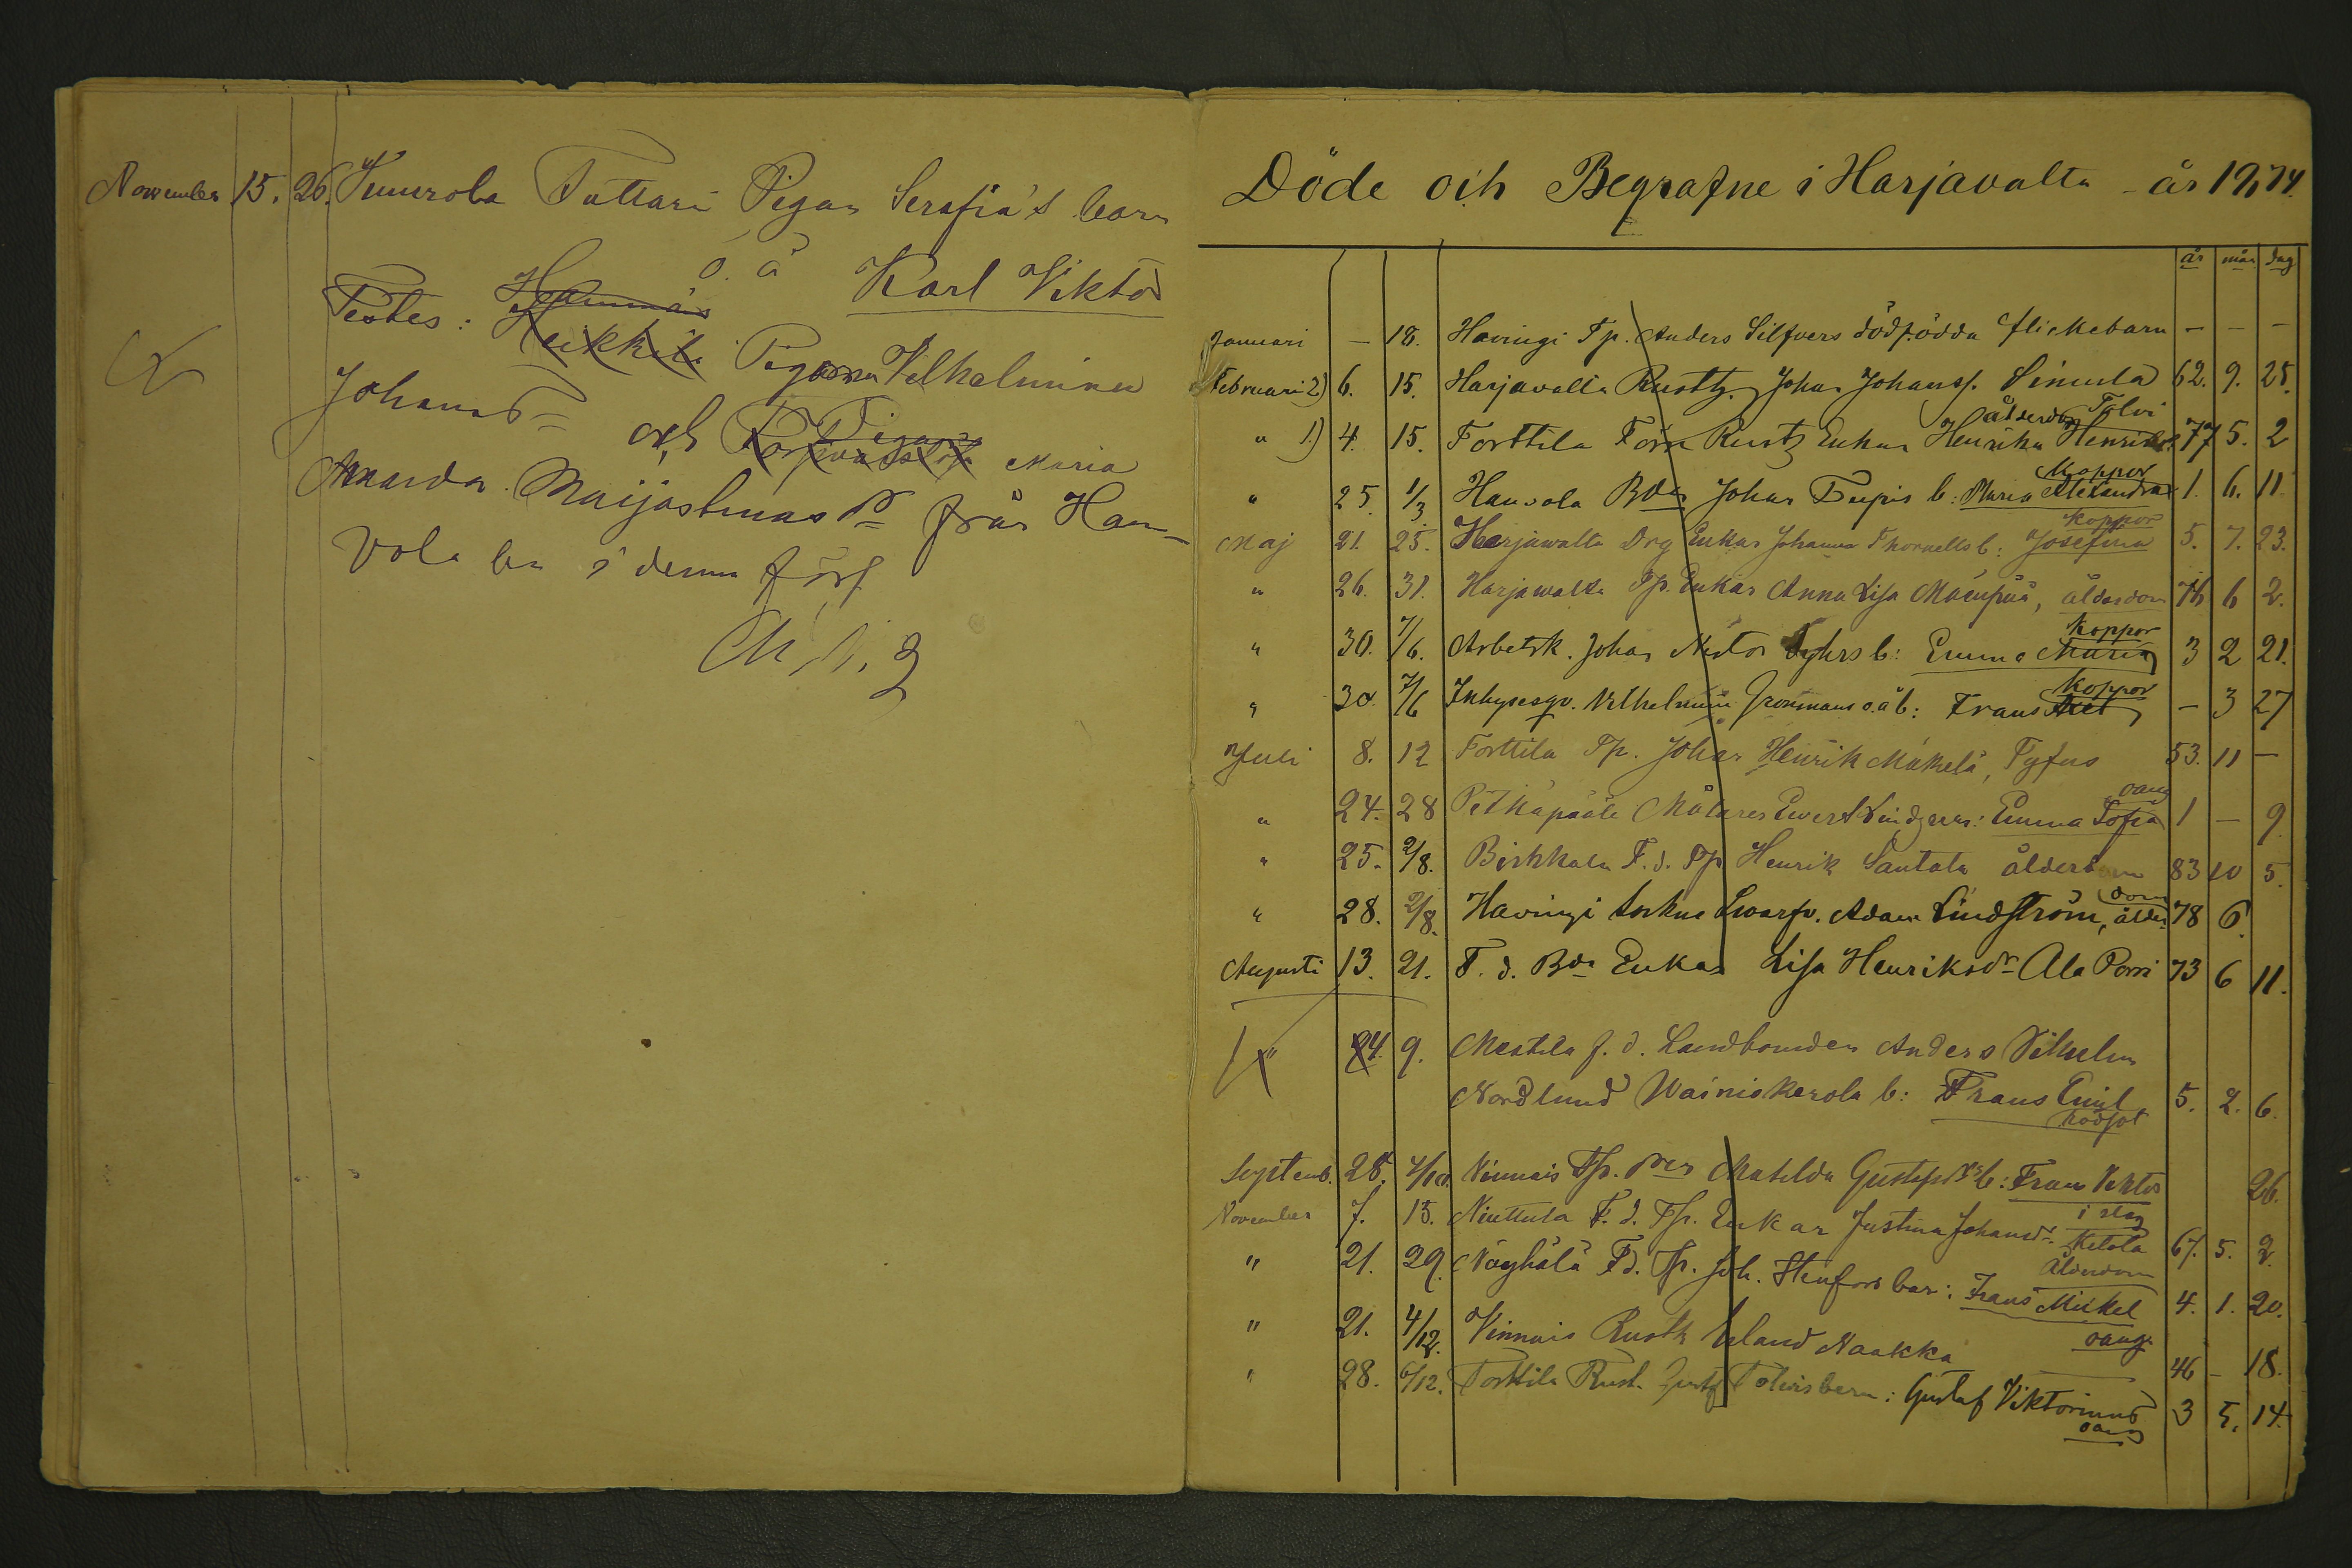 November 15. 26. Tuttari Pigan Serafia's barn
o. ä Karl Viktor
Testes: Heikkilä Pigorna Vilhelmina
Johansdr och Pigan Maria
Amanda Maijastinas dr från Hau-
vola by i denna förs
Döde och Begrafne i Harjavalta år 1874.
år mån dag
Januari — 18. Havingi Tp. Anders Silfvers dödfödda flickebarn — — —
Februari 2) 6. 15. Harjavalta Rusth. Johan Johanss. Simula 62. 9. 25.
ålderdom Tolvi
" 1) 4. 15. Torttila Förra Rustz Enkan Henrika Henriksdr 77 5. 2
koppor
" 25. 1/3. Hauvola Bdn Johan Teepis b: Maria Alexandra 1. 6. 11.
koppor
Maj 21. 25. Harjawalta Drg Enkan Johanna Thornells b: Josefina 5. 7. 23.
" 26. 31. Harjawalta Tp. Enkan Anna Lisa Mäenpää, ålderdom 76 6 2.
koppor
" 30. 7/6. Arbetsk. Johan Nestor b: Emma Maria 3 2 21.
koppor
" 30. 7/6 Inhysesqv. Vilhelmina Gronmans o.ä b: Frans Axel — 3 27
Juli 8. 12 Torttila Tp. Johan Henrik Mäkelä, Tyfus 53. 11 —
oang
" 24. 28 Pitkäpäälä Målares Evert Lindgrens: Emma Sofia 1 — 9
" 25. 2/8. Pirkkala F. d. Tp Henrik Santala ålderdom 83 10 5.
dom
" 28. 2/8. Havingi Sockne Swarfv. Adam Lindström, ålder 78 6.
Augusti 13. 21. F. d. Bdn Enkan Lisa Henriksdr Ala Porri 73 6 11.
" 24. 9. Merstola f. d. Landbonden Anders Vilhelm
Nordlund Wäiniskerola b: Frans Emil 5. 2. 6.
rödsot
Septemb. 28. 4/10. Vinnais Tp. Matilda Gustafsdrs b: Frans Viktor 26.
i slag
November 7. 15. Niuttula F. d. Tp. Enkan Justina Johansdr Ketola 67. 5. 2.
Ålderdom
" 21. 29. Näyhälä Fd. Tp. Joh. Stenfors barn: Frans Mickel 4. 1. 20.
oang.
" 21. 4/12. Vinnais Rusth Erland Naakka 46 — 18.
" 28. 6/12. Torttila Rusth. Gustaf Tolvis barn: Gustaf Viktorinus 3 5. 14.
oang